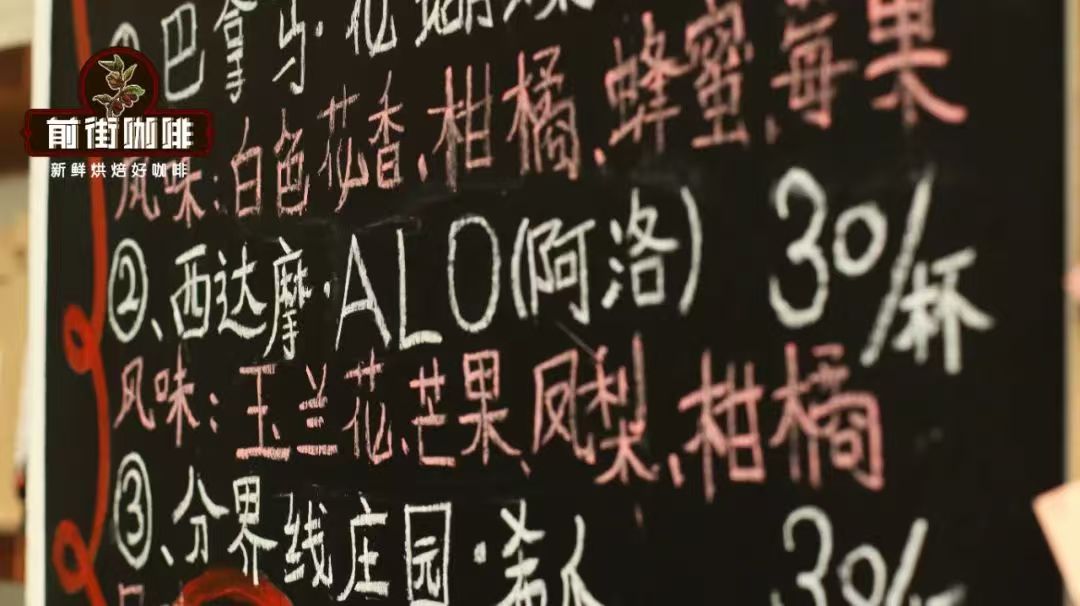 ①巴拿马·花蝴蝶
前街咖啡
新鲜烘焙好咖啡
风味:白色花香、柑橘、蜂蜜、莓果
②、西达摩·ALO(阿洛) 30/杯
风味:玉兰花、芒果、凤梨、柑橘
③、分界线庄园· 30/